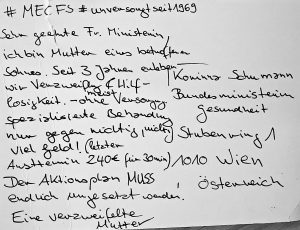 # MECFS # unversorgt seit 1969
Sehr geehrte Fr. Ministerin
ich bin Mutter eines betroffenen
Sohnes. Seit 3 Jahren erleben
wir Verzweiflg & Hilf-
losigkeit. - ohne Versorgg
meist
spezialisierte Behandlung
nur gegen richtig, richtig
viel Geld! (letzten
Arzttermin 240€ für 30min)
Der Aktionsplan MUSS
endlich umgesetzt werden!
Eine verzweifelte
Mutter
Korinna Schumann
Bundesministerium
gesundheit
Stubenring 1
1010 Wien
Österreich